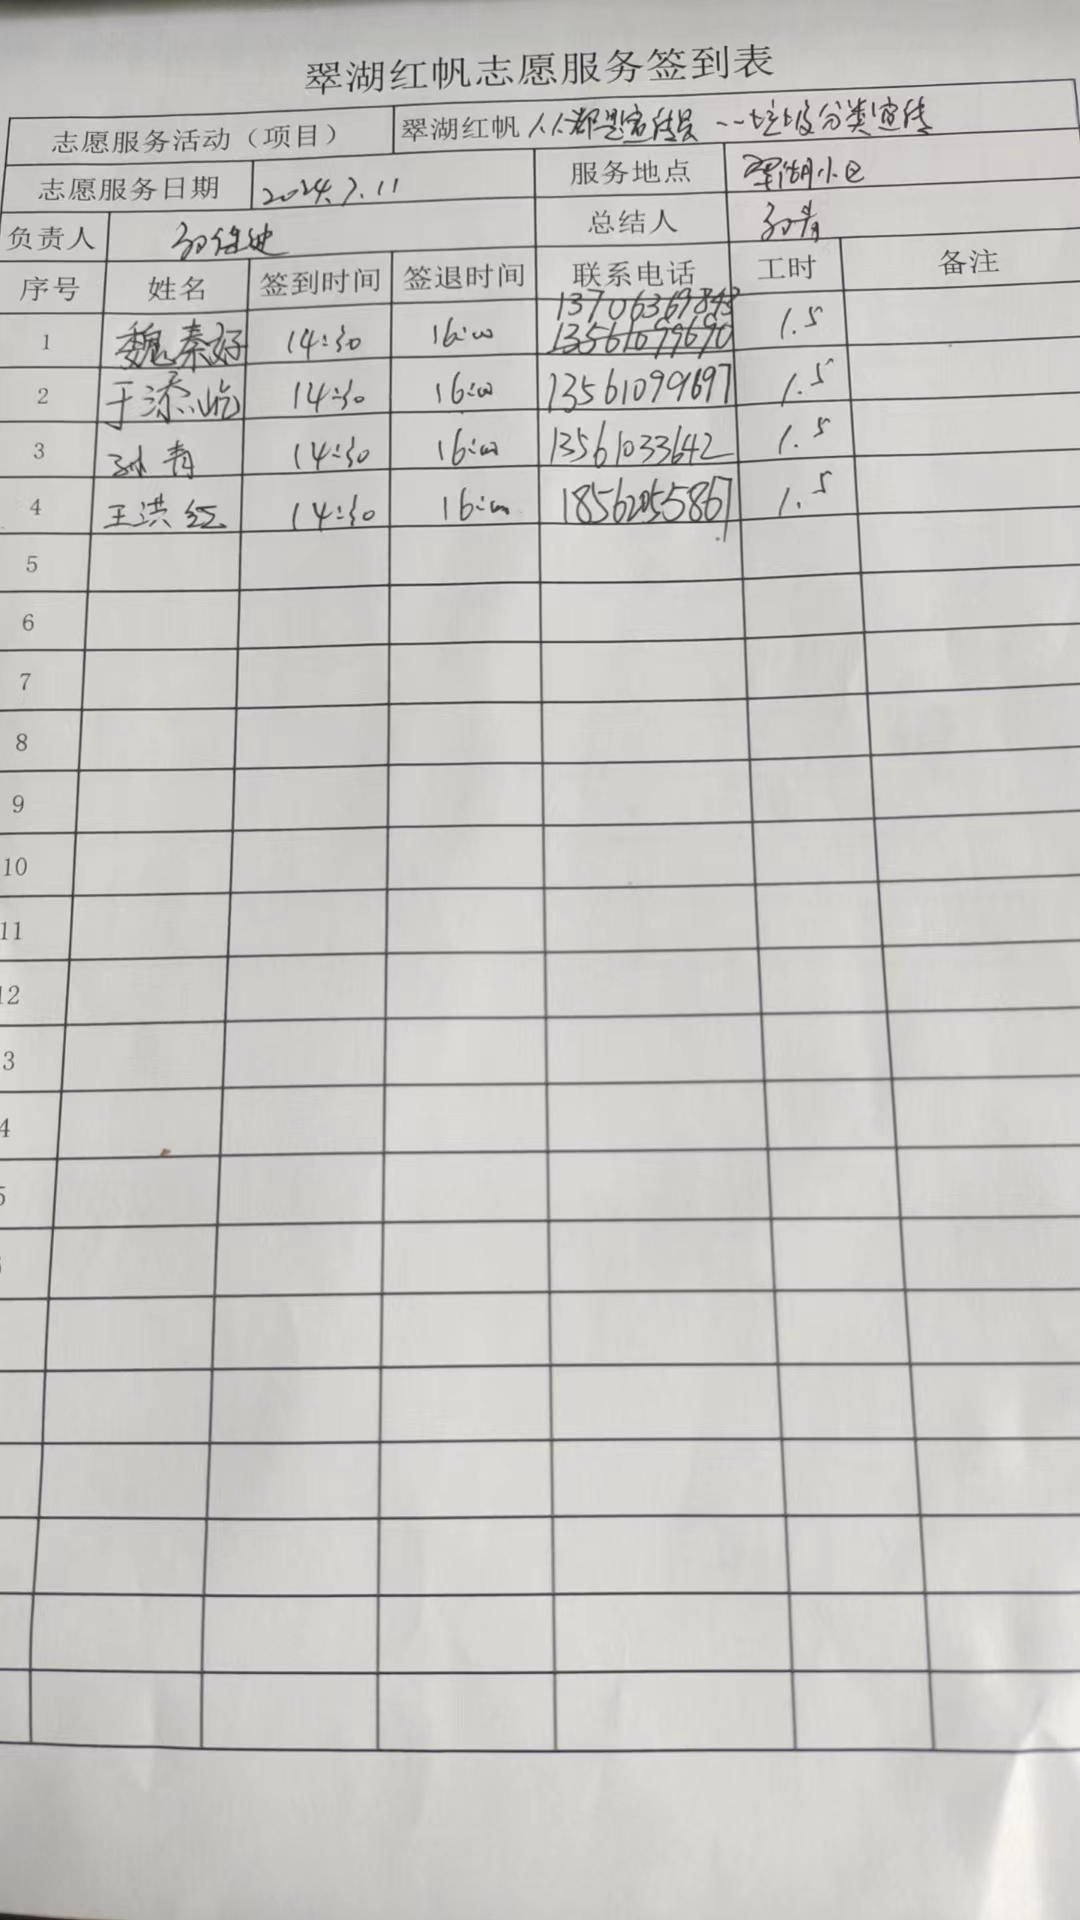 翠湖红帆志愿服务签到表
志愿服务活动（项目） 翠湖红帆人人都是宣传员--垃圾分类宣传
志愿服务日期 2024.7.11 服务地点 翠湖小区
负责人 总结人 孙青
序号 姓名 签到时间 签退时间 联系电话 工时 备注
1 魏秦好 14:30 16:00 1.5
2 于添屹 14:30 16:00 13561099697 1.5
3 孙青 14:30 16:00 13561033642 1.5
4 王洪红 14:30 16:00 18562055867 1.5
5
6
7
8
9
10
11
12
3
4
5